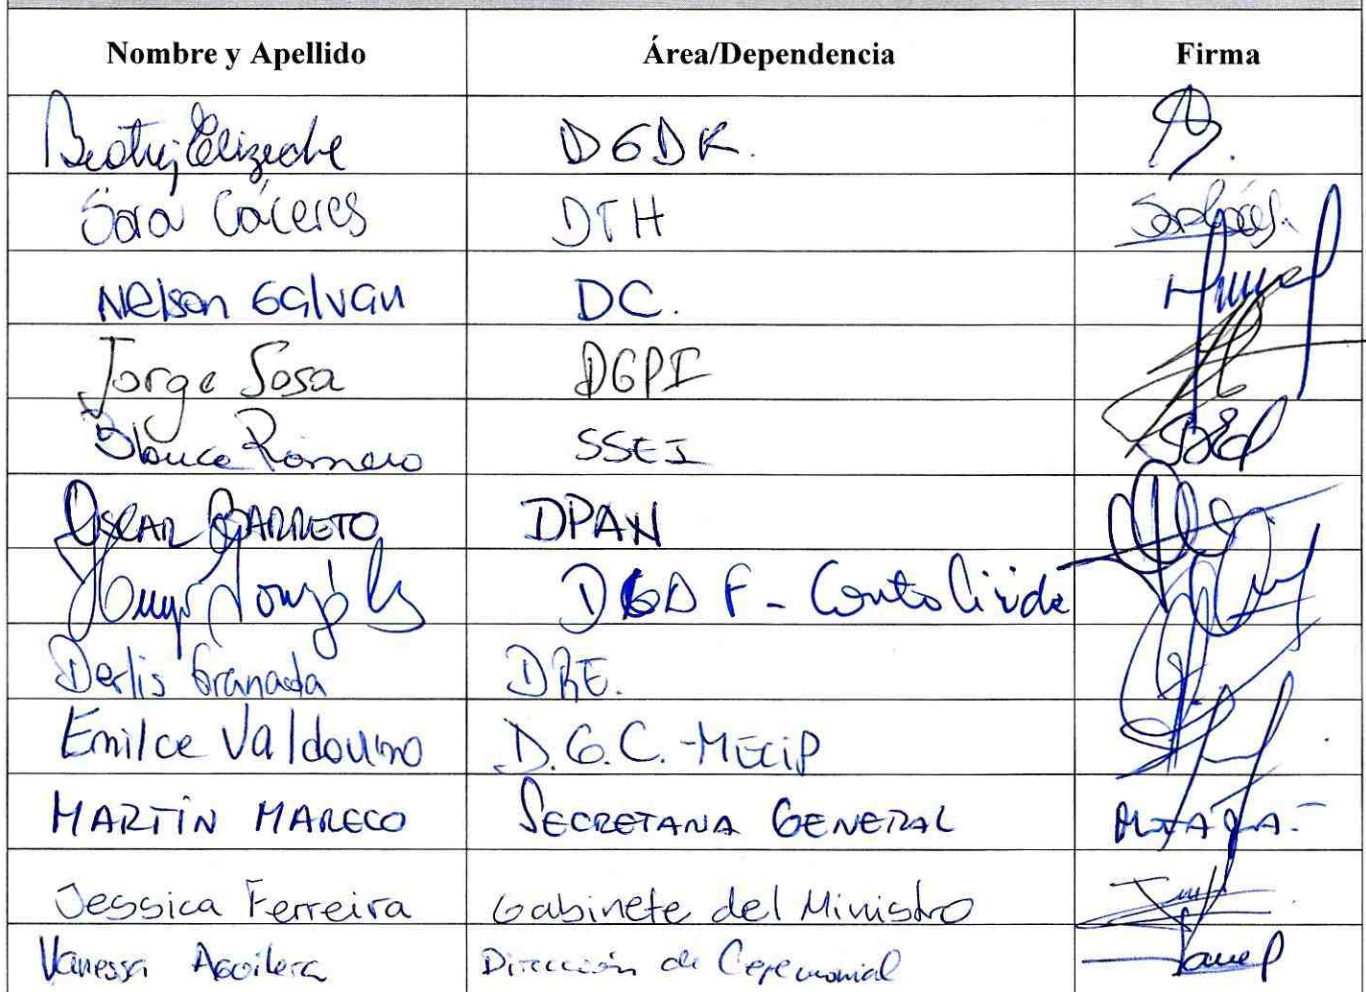 Nombre y Apellido Área/Dependencia Firma
Beatriz Elizeche DGDR.
Sara Cáceres DTH
Nelson Galvan DC.
Jorge Sosa DGPI
Blanca Romero SSEI
OSCAR BARRETO DPAN
Hugo González DGDF -
Derlis Granada DRE.
Emilce Valdovino D.G.C.-MECIP
MARTÍN MARECO SECRETARIA GENERAL
Jessica Ferreira Gabinete del Ministro
Vanessa Aguilera Dirección de Ceremonial